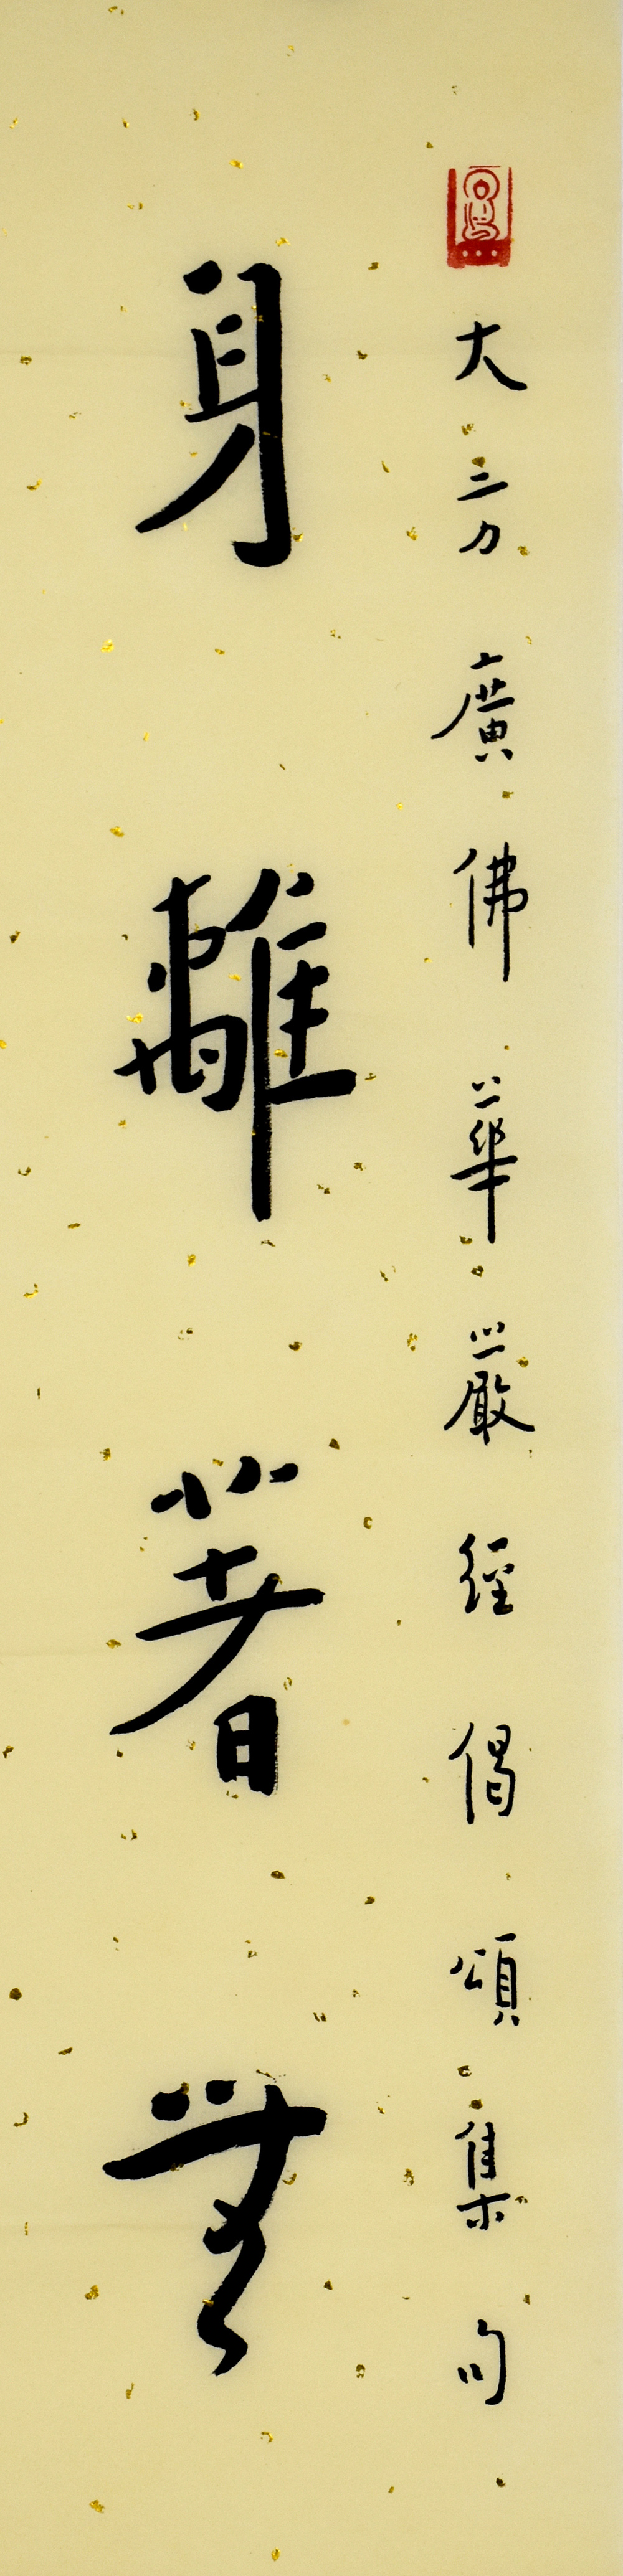 大方廣佛華嚴經偈頌集句
身離著無